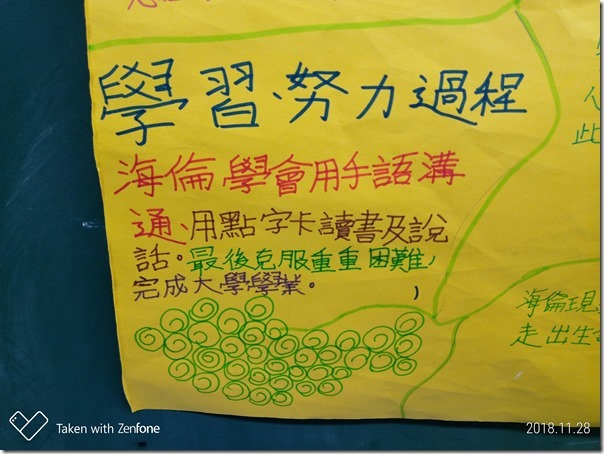 學習、努力過程
海倫學會用手語溝
通、用點字卡讀書及說
話。最後克服重重困難,
完成大學學業。
人
此
海倫現
走出生
Taken with Zenfone
2018.11.28